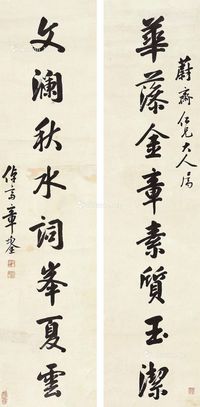 華藻金章素質玉潔
蔚齋仁兄大人屬
文澜秋水詞峯夏雲
章鋆